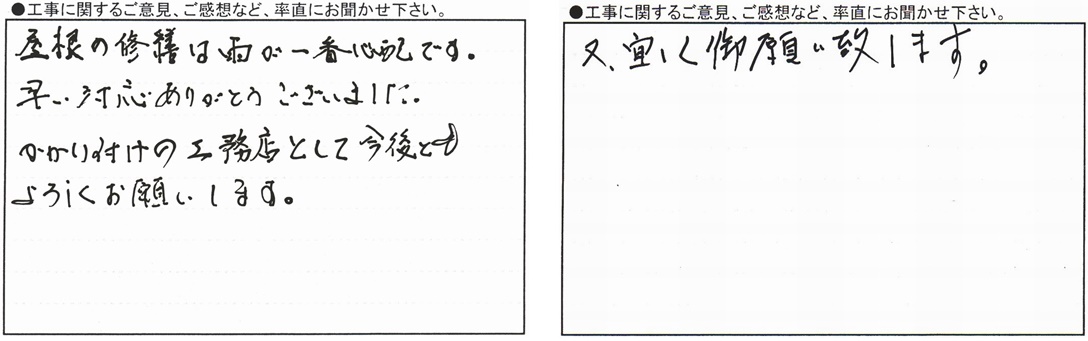 ●工事に関するご意見、ご感想など、率直にお聞かせ下さい。
屋根の修繕は雨が一番心配です。
早い対応ありがとうございました。
かかり付けの工務店として今後とも
よろしくお願いします。
●工事に関するご意見、ご感想など、率直にお聞かせ下さい。
又、宜しく御願い致します。